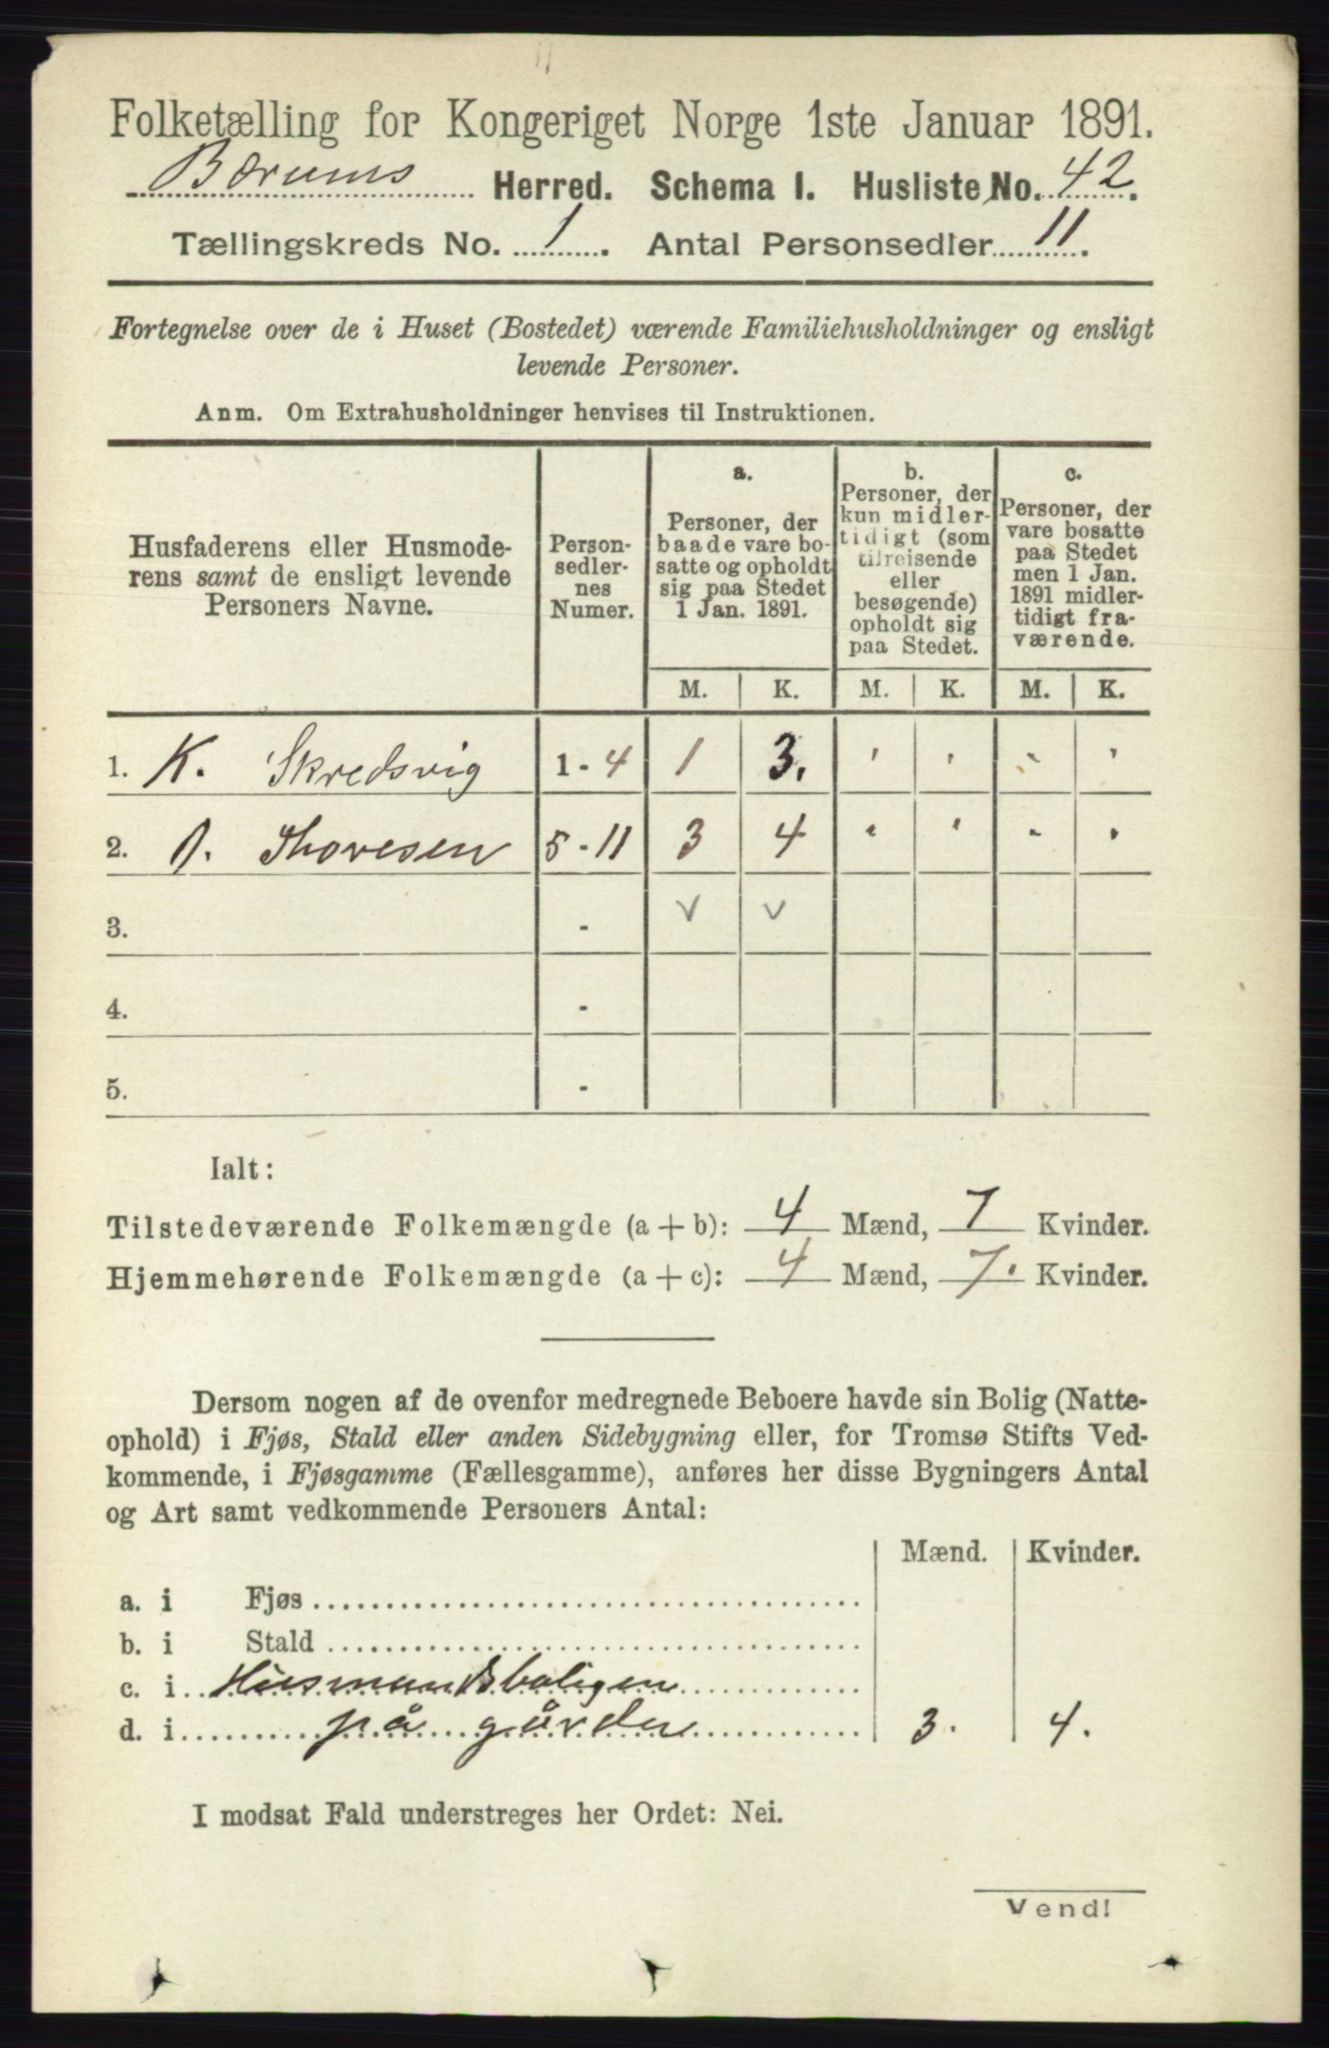 Folketælling for Kongeriget Norge 1ste Januar 1891.
Bærums Herred. Schema I. Husliste No. 42.
Tællingskreds No. 1. Antal Personsedler 11.
Fortegnelse over de i Huset (Bostedet) værende Familiehusholdninger og ensligt
levende Personer.
Anm. Om Extrahusholdninger henvises til Instruktionen.
Husfaderens eller Husmode-
rens samt de ensligt levende
Personers Navne.
Person-
sedler-
nes
Numer.
a.
Personer, der
baade vare bo-
satte og opholdt
sig paa Stedet
1 Jan. 1891.
b.
Personer, der
kun midler-
tidigt (som
tilreisende
eller
besøgende)
opholdt sig
paa Stedet.
c.
Personer, der
vare bosatte
paa Stedet
men 1 Jan.
1891 midler-
tidigt fra-
værende.
M. K. M. K. M. K.
1. K. Skredsvig 1 - 4 1 3.
2. Thoresen 5 - 11 3 4
3. - v v
4. -
5. -
Ialt:
Tilstedeværende Folkemængde (a + b): 4 Mænd, 7 Kvinder.
Hjemmehørende Folkemængde (a + c): 4 Mænd, 7. Kvinder.
Dersom nogen af de ovenfor medregnede Beboere havde sin Bolig (Natte-
ophold) i Fjøs, Stald eller anden Sidebygning eller, for Tromsø Stifts Ved-
kommende, i Fjøsgamme (Fællesgamme), anføres her disse Bygningers Antal
og Art samt vedkommende Personers Antal:
Mænd. Kvinder.
a. i Fjøs
b. i Stald
c. i Husmandsboligen
d. i på gården 3. 4.
I modsat Fald understreges her Ordet: Nei.
Vend!